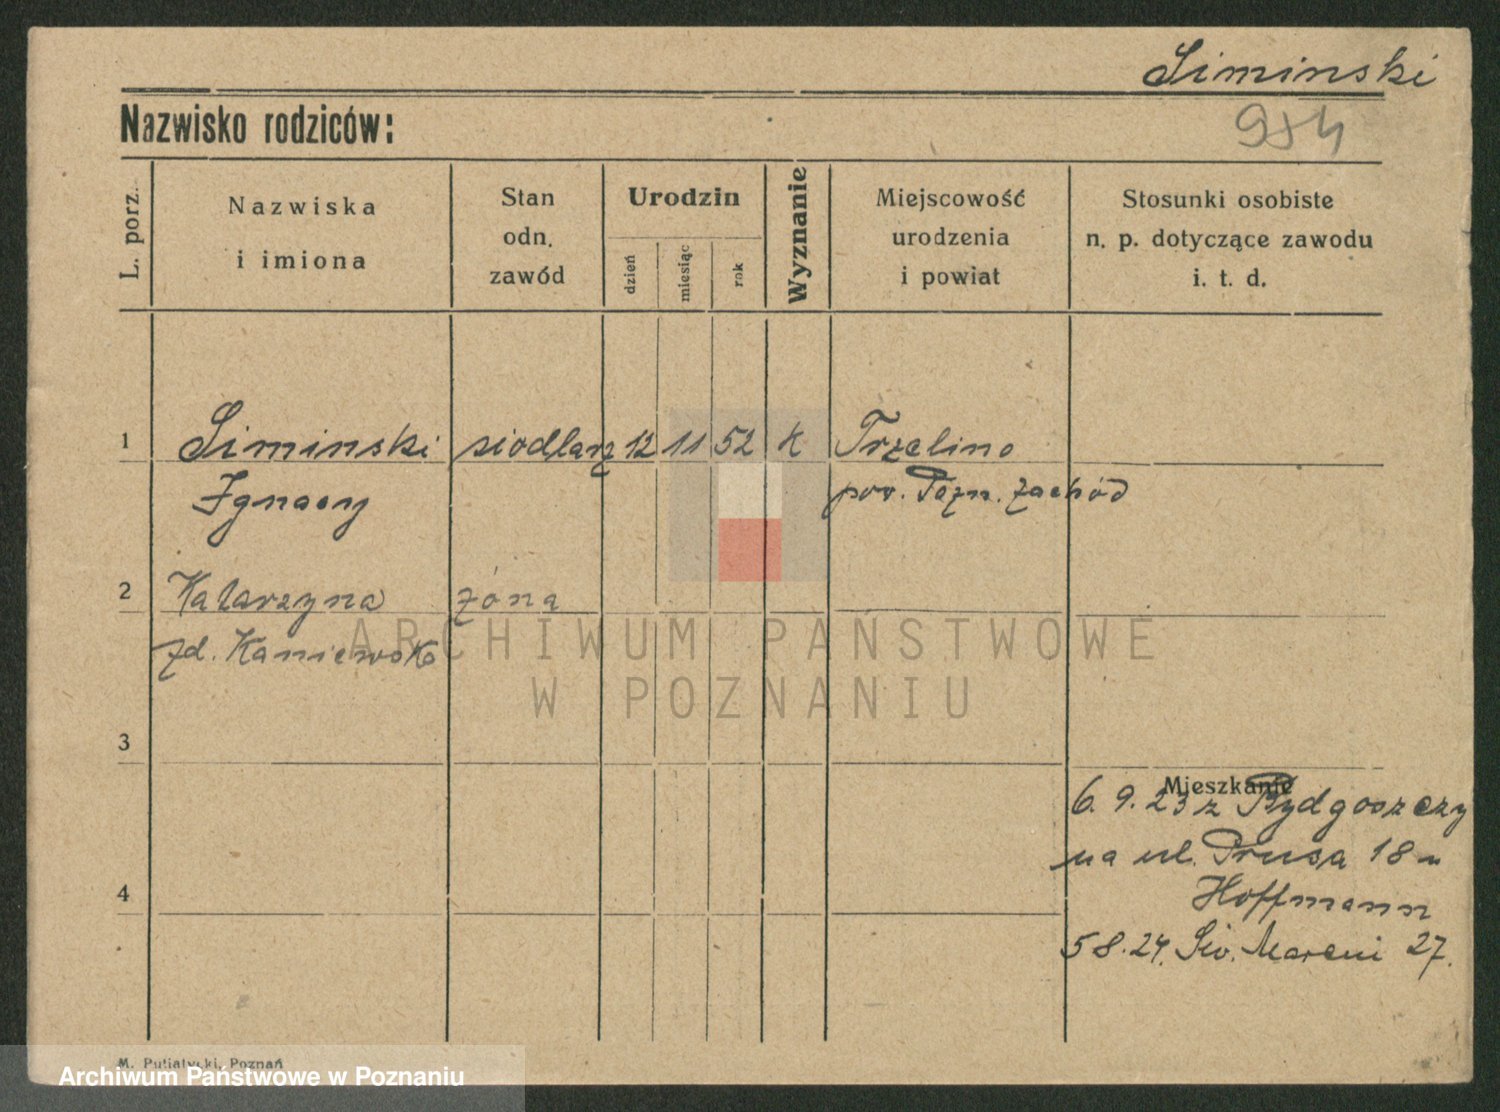 Siminski
Nazwisko rodziców:
984
L. porz.
Nazwiska
i imiona
Stan
odn.
zawód
Urodzin
dzień
miesiąc
rok
Wyznanie
Miejscowość
urodzenia
i powiat
Stosunki osobiste
n. p. dotyczące zawodu
i. t. d.
1 Siminski siodlarz 12 11 52 k Trzelino
Ignacy pow. Pozn. Zachód
2 Katarzyna żona
zd. Kaniewska
ARCHIWUM PAŃSTWOWE
W POZNANIU
3
Mieszkanie
6. 9. 23 z Bydgoszczy
na ul. Prusa 18 u
4
Hoffmann
5 8. 24. Św. Marcin 27.
M. Putiatycki, Poznań
Archiwum Państwowe w Poznaniu